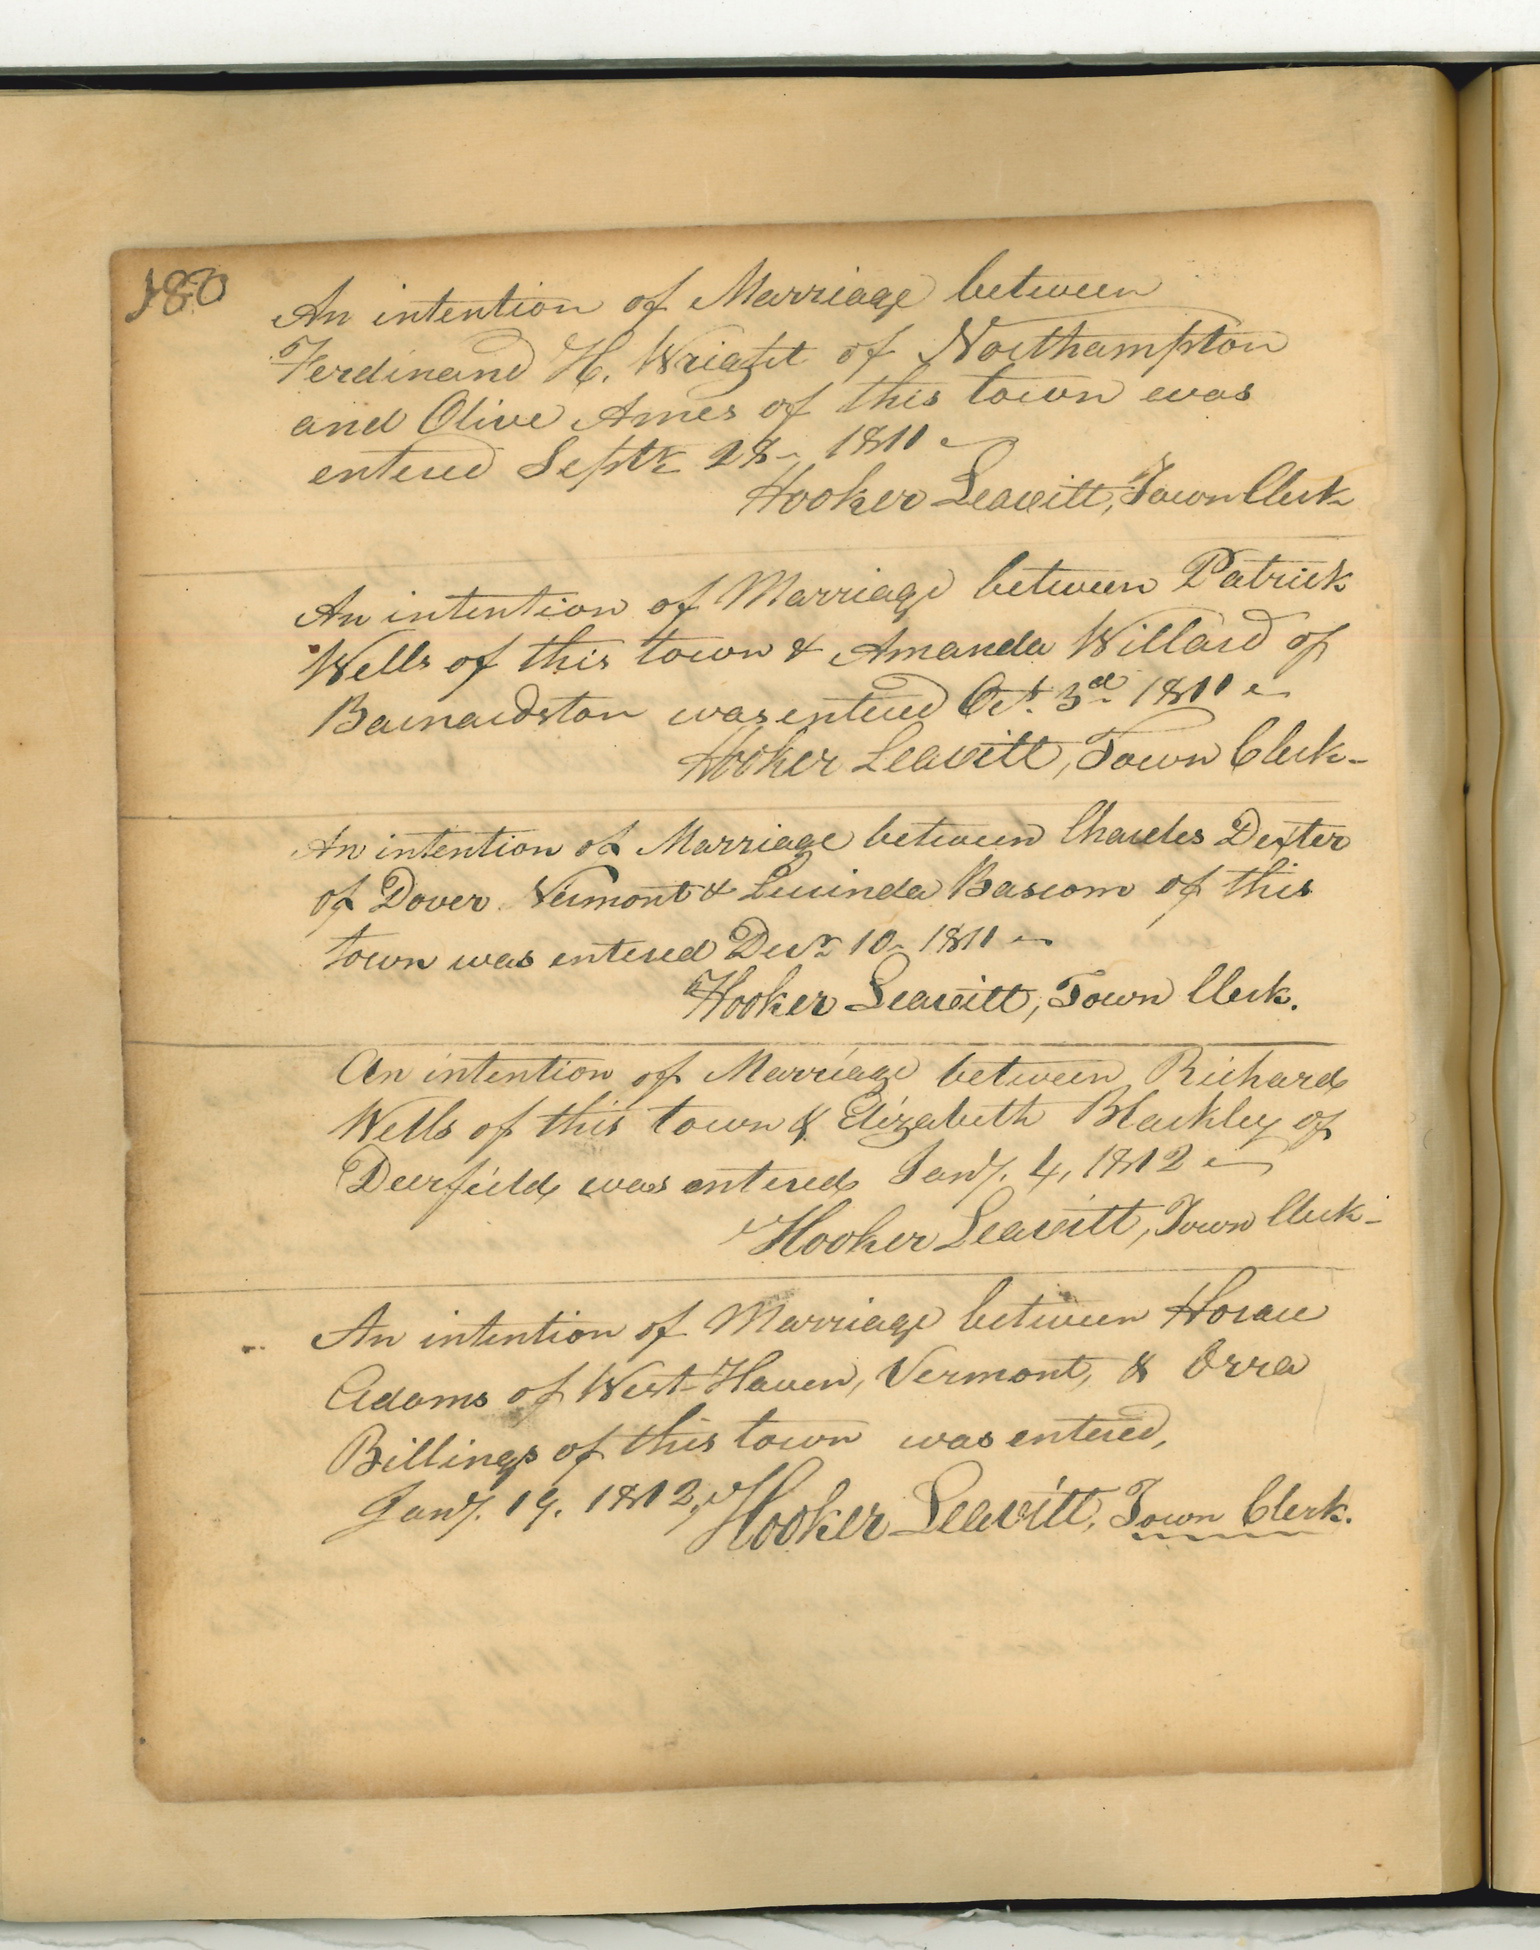 180
An intention of Marriage between
Ferdinand H. Wright of Northampton
and Olive Ames of this town was
entered Septr 28- 1811
Hooker Leavitt, Town Clerk
An intention of Marriage between Patrick
Wells of this town & Amanda Willard of
Barnardston was entered Oct. 3d 1811
Hooker Leavitt, Town Clerk-
An intention of Marriage between Charles Dexter
of Dover Vermont & Lucinda Bascom of this
town was entered Decr 10- 1811
Hooker Leavitt, Town Clerk.
An intention of Marriage between Richard
Wells of this town & Elizabeth Blackley of
Deerfield was entered Jany. 4, 1812
Hooker Leavitt, Town Clerk-
An intention of Marriage between Horace
Adams of West-Haven, Vermont, & Orra
Billings of this town was entered,
Jany. 19. 1812, Hooker Leavitt, Town Clerk.